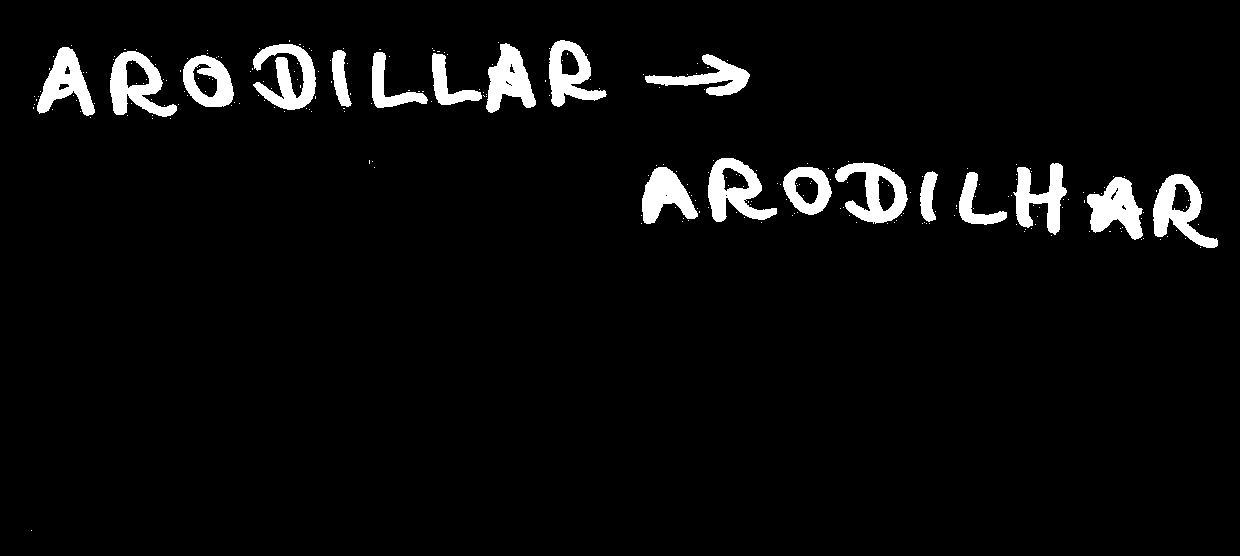 ARODILLAR →
ARODILHAR